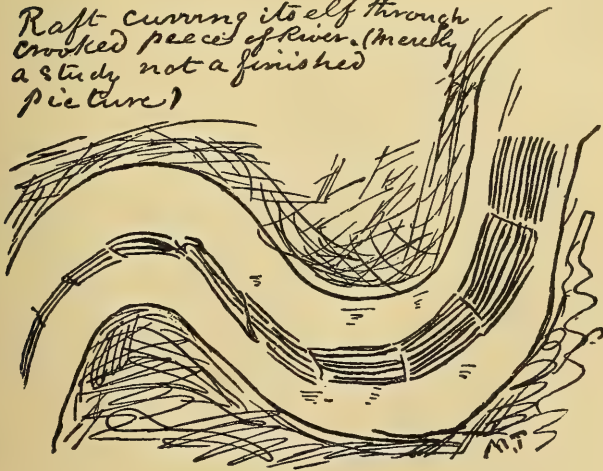 Raft curving itself through
crooked peece of River. (merely
a study not a finished
picture)
M.T